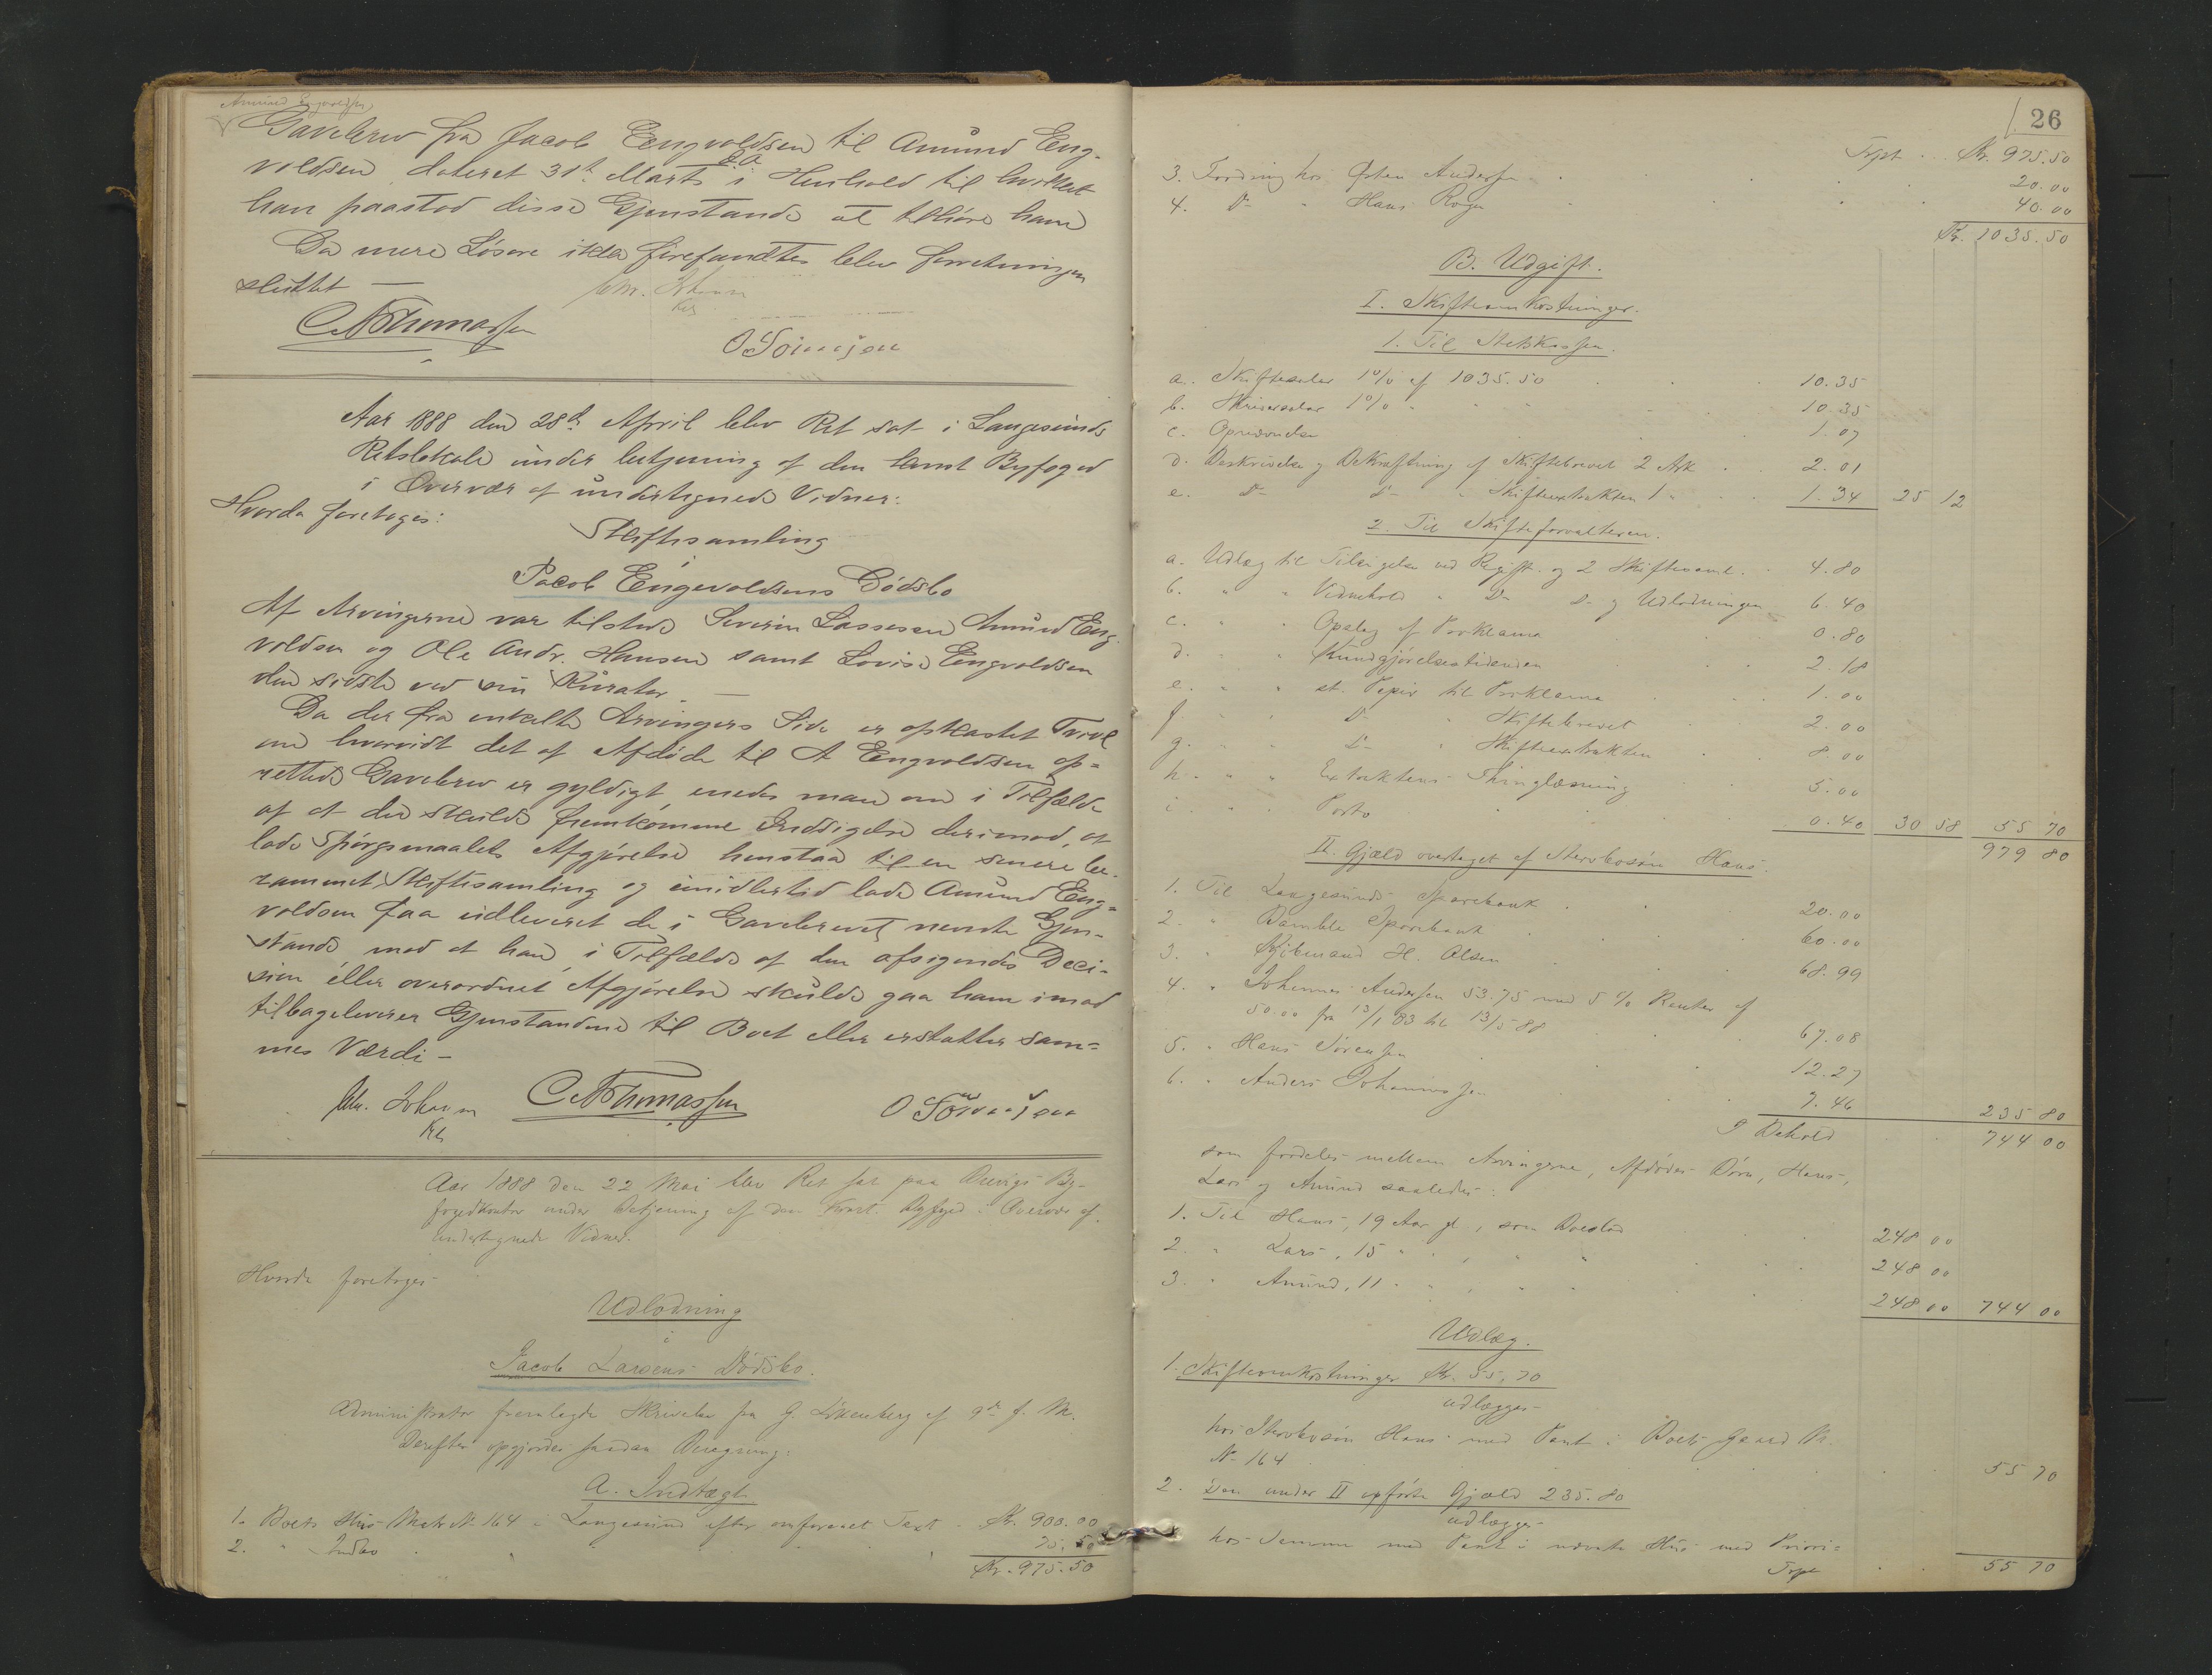 Amund Engvoldsen
Gavebrev fra Jacob Eengvoldsen til Amund Eng-
voldsen dateret 31te Marts d.A. i Henhold til hvilket
han paastod disse Gjenstande at tilhøre ham
Da mere Løsøre ikke forefandtes blev forretningen
sluttet —
Chr. Johnsen
C A Thomassen
O Tönnesen
Aar 1888 den 28de April blev Ret sat i Langesunds
Retslokale under betjening af den konst Byfoged
i Overvær af undertegnede Vidner:
Hvorda foretoges:
Skiftesamling
i
Jacob Eengevoldsens Dödsbo
Af Arvingerne var tilstede Severin Lassesen Amund Eng-
voldsen og Ole Andr. Hansen samt Lovise Eengvoldsen
den sidste ved sin Kurator —
Da der fra enkelte Arvingers Side er opkastet Tvivl
om hvorvidt det af Afdøde til A Eengvoldsen op-
rettede Gavebrev er gyldigt enedes man om i Tilfælde
af at der skulde fremkomme Indsigelse derimod, at
lade Spørgsmaalets Afgjørelse henstaa til en senere be-
rammet Skiftesamling og imidlertid lade Amund Eng-
voldsen faa udleveret de i Gavebrevet nevnte Gjen-
stande mod at han i Tilfælde af den afsigendes Deci-
sion eller overordnet Afgjørelse skulde gaa ham imod
tilbageleverer Gjenstandene til Boet eller erstatter sam-
mes Værdi —
Chr. Johnsen
C A Thomassen
O Tönnesen
Aar 1888 den 22 Mai blev Ret sat paa Brevigs By-
fogedkontor under Betjening af den konst. Byfoged i Overvær af
undertegnede Vidner.
Hvorda foretoges
Udlodning
i
Jacob Larsens Dödsbo.
Administrator fremlagde Skrivelse fra G. af 9de f. M.
Derefter opgjordes saadan Beregning:
A. Indtægt
1. Boets Hus Matr No 164 i Langesund efter omforenet Taxt Kr. 900.00
2. " Indbo 75.50
Kr. 975.50
26
Trpt Kr. 975.50
3. Fordring hos Østen Andersen 20.00
4. Do " Hans Roger 40.00
Kr. 1035.50
B. Udgift.
I. Skifteomkostninger.
1. Til Statskassen.
a. Skiftesalar 1% af 1035.50 10.35
b. Skriversalar 1% " 10.35
c. Opnævnelse 1.07
d. Beskrivelse og Bekræftning af Skiftebrevet 2 Ark 2.01
e. Do Do " Skifteextrakten 1 " 1.34 25 12
2. Til Skifteforvalteren.
a. Udlæg til Tilsigelse ved Regist. og 2 Skiftesaml. 4.80
b. " " Vidnehold " Do Do og Udlodningen 6.40
c. " " Opslag af Proklama 0.80
d. " " Kundgjørelsestidenden 2.18
e. " " st. Papir til Proklama 1.00
f. " " Do " Skiftebrevet 2.00
g. " " Do " Skifteextrakten 8.00
h. " " Extraktens Thinglæsning 5.00
i " " Porto 0.40 30 58 55 70
979 80
II. Gjæld overtaget af Stervbosøn Hans.
1. Til Langesunds Sparebank 20.00
2. " Bamble Sparebank 60.00
3. " Kjøbmand H. Olsen 68.99
4. " Johannes Andersen 53.75 med 5 % Renter af
50.00 fra 13/1 83 til 13/5 88 67.08
5. " Hans Sørensen 12.27
6. " Anders Johannessen 7.46 235 80
I Behold 744 00
som fordeles mellem Arvingerne, Afdødes Børn, Hans,
Lars og Amund saaledes:
1. Til Hans, 19 Aar gl, som Boeslod 248 00
2. " Lars, 15 " " , " " 248 00
3. " Amund, 11 " " , " " 248 00 744 00
Udlæg.
1. Skifteomkostninger Kr. 55,70
udlægges
hos Stervbosøn Hans med Pant i Boets Gaard M.
No 164 55 70
2. Den under II opførte Gjæld 235.80
udlægges
hos Samme med Pant i nævnte Hus med Priori-
Trpt 55 70